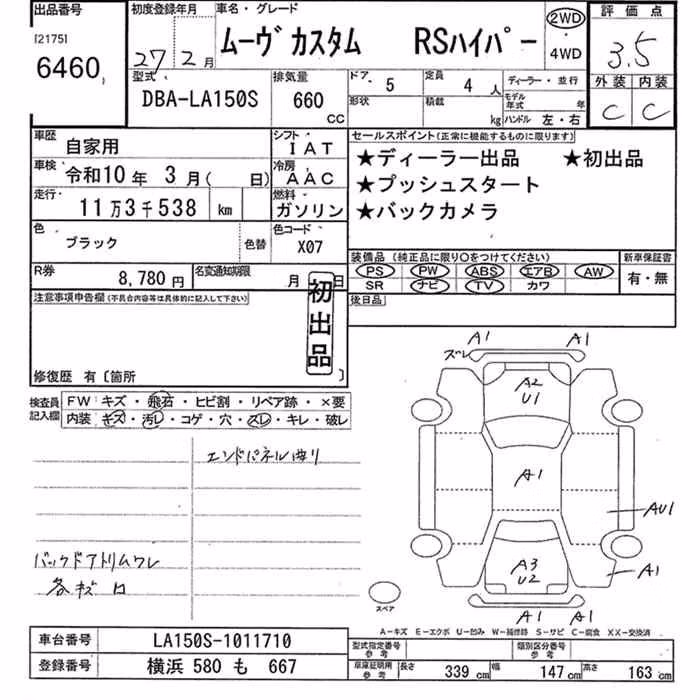 出品番号 初度登録年月 車名・グレード 評価点
[2175] 27 2月 ムーヴ カスタム RSハイパー 2WD ・ 4WD 3.5
6460 型式 排気量 ドア 5 定員 4 人 ディーラー・並行 外装 内装
DBA-LA150S 660 CC 形状 積載 kg モデル年式 年 ハンドル 左・右 C C
車歴 自家用 シフト IAT セールスポイント(正常に機能するものに限ります)
車検 令和10年 3月( 日) 冷房 AAC ★ディーラー出品 ★初出品
★プッシュスタート
走行 11万3千538 km 燃料 ガソリン ★バックカメラ
色 ブラック 色替 色コード X07
装備品(純正品に限り○をつけてください) 新車保証書
R券 8,780円 名変通知期限 月 日 PS PW ABS エアB AW 有・無
SR ナビ TV カワ
注意事項申告欄(不具合内容等は具体的に記入して下さい) 後日品
初出品
修復歴 有〔箇所 〕
検査員記入欄 FW キズ・飛石・ヒビ割・リペア跡・×要
内装 キズ・汚レ・コゲ・穴・スレ・キレ・破レ
エンドパネル曲り
バックドアトリムワレ
各キズ ロ
A1 A1
ズレ
A2
U1
A1
AU1
A3
U2
A1
A1 A1
スペア
A-キズ E-エクボ U-凹み W-補修跡 S-サビ C-腐食 XX-交換済
車台番号 LA150S-1011710 型式指定番号 参考 類別区分番号 参考
登録番号 横浜 580 も 667 車庫証明用 参考 長さ 339 cm 幅 147 cm 高さ 163 cm